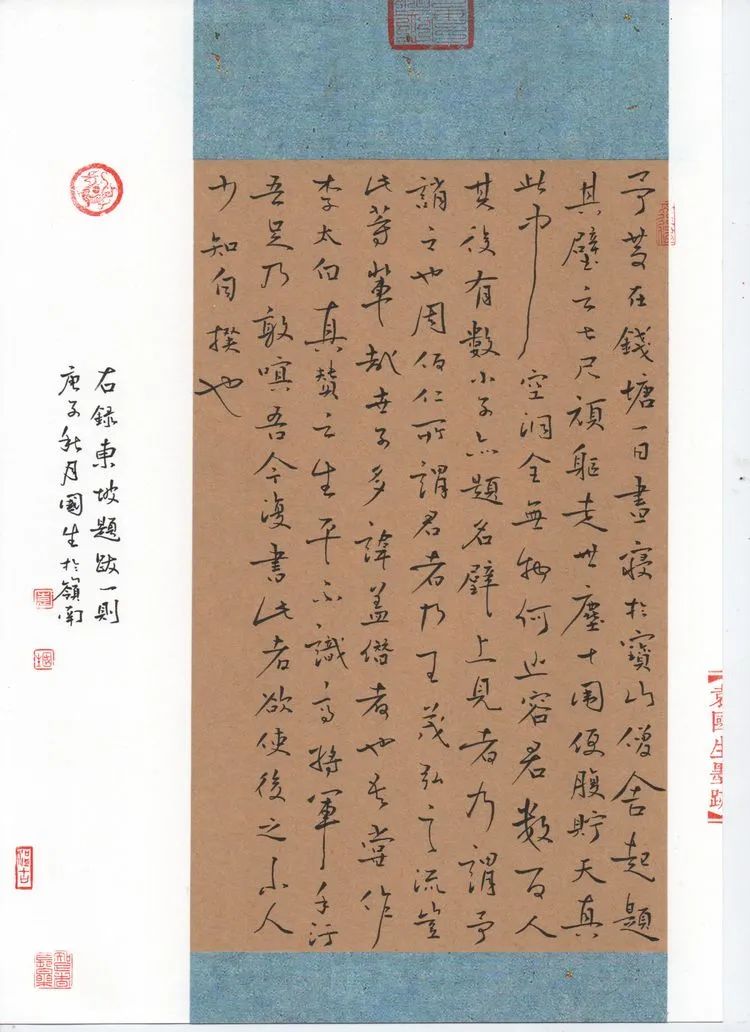 袁國生墨跡
予昔在錢塘一日晝寢於寶山僧舍起題
其壁云七尺頑軀走世塵十围便腹貯天真
此中空洞全無物何止容君數百人
其後有數小子亦題名壁上見者乃謂予
誚之也周伯仁所謂君者乃王茂弘之流豈
此等輩哉世子多諱蓋僭者也吾嘗作
李太白真贊云生平不識高將軍手污
吾足乃敢嗔吾今復書此者欲使後之小人
少知自揆也
右録東坡題跋一則
庚子秋月國生於嶺南